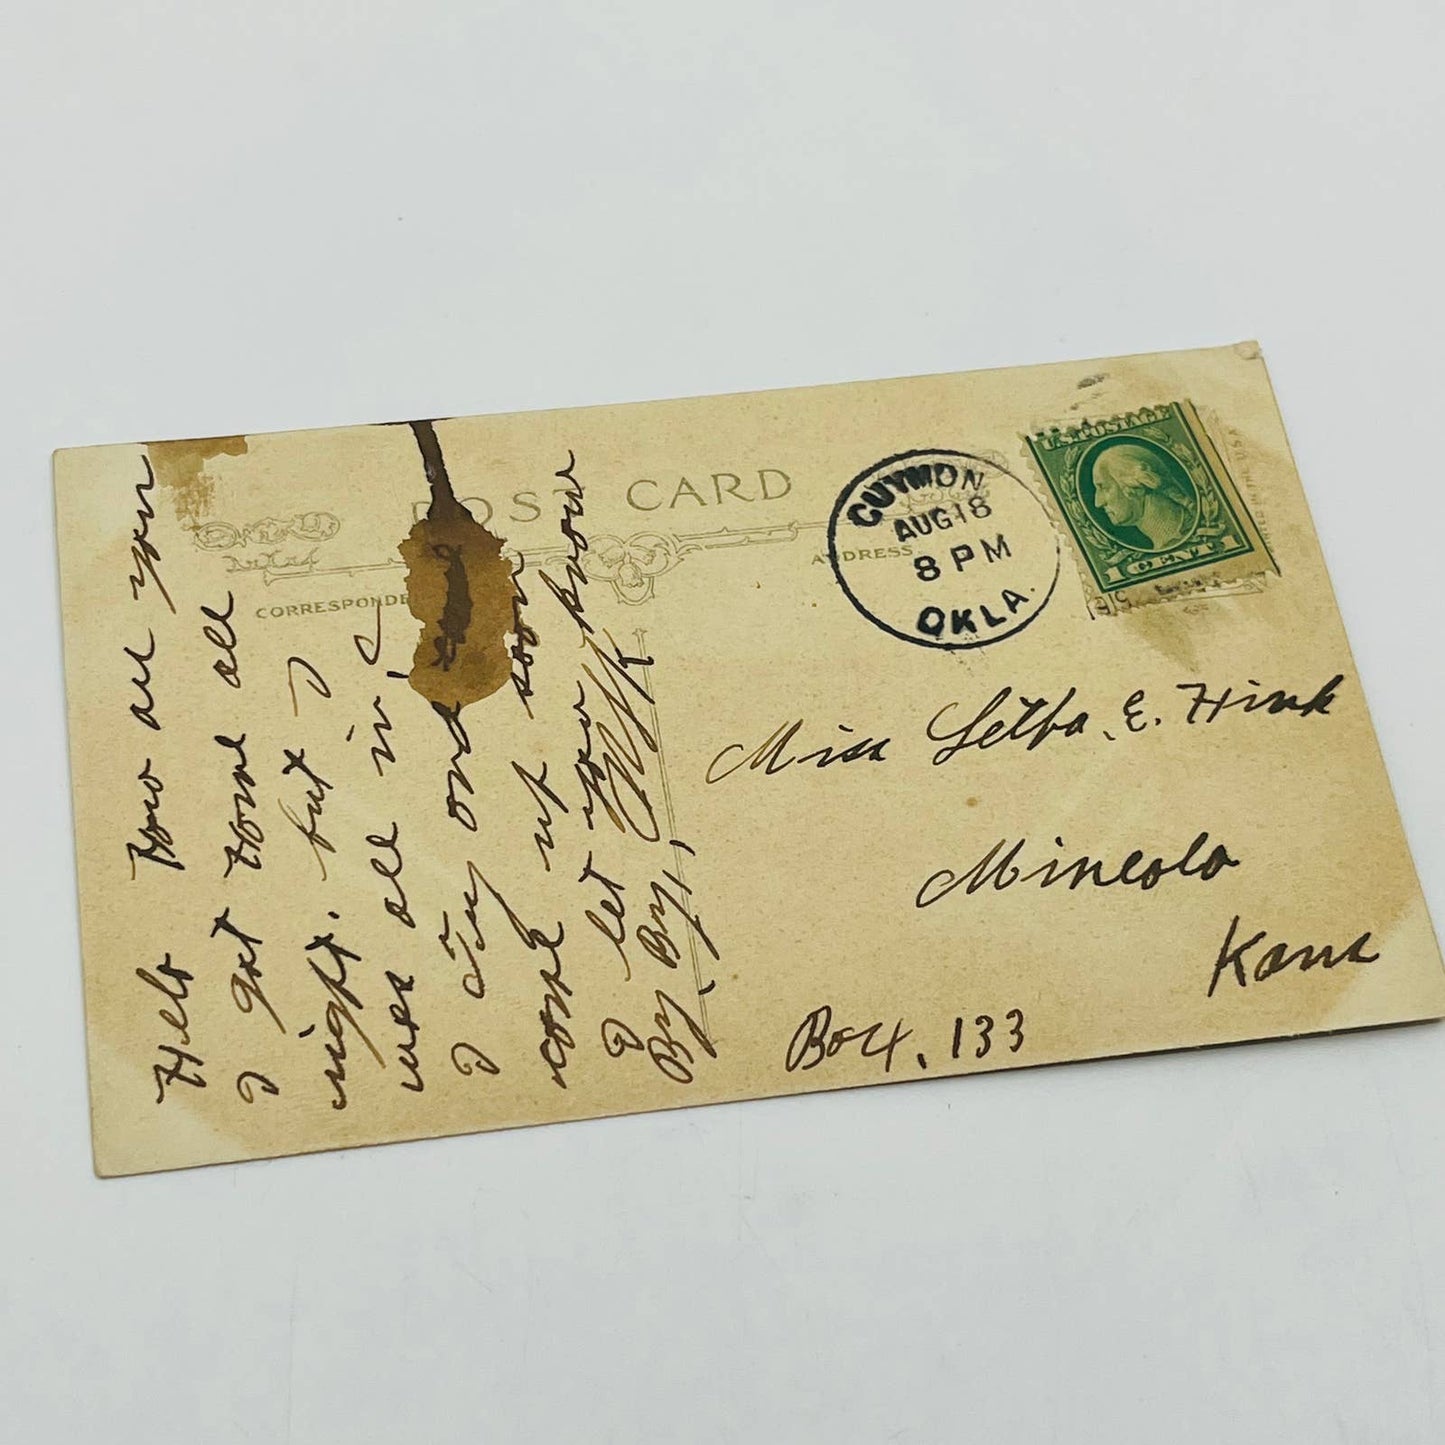 POST CARD
CORRESPONDE
ADDRESS
GUYMON
AUG 18
8 PM
OKLA.
U.S. POSTAGE
1 1
Helo How are you
I got Home all
right. but I
was all in.
I Try and
come up soon
I let you know
By. By.,
Miss Letha. E. Hink
Mineola
Kans
Box. 133